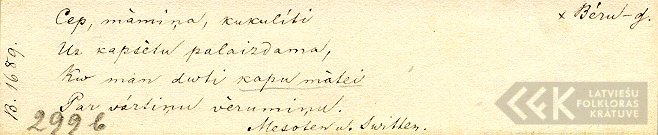 Cep, māmiņa, kukulīti
Uz kapsētu palaizdama,
Kw man dwti kapu mātei
Par vārtiņu vērumiņu.
Mesoten u. Switten.
× Bēru-dz.
B. 1689.
2996
LATVIEŠU
FOLKLORAS
KRĀTUVE